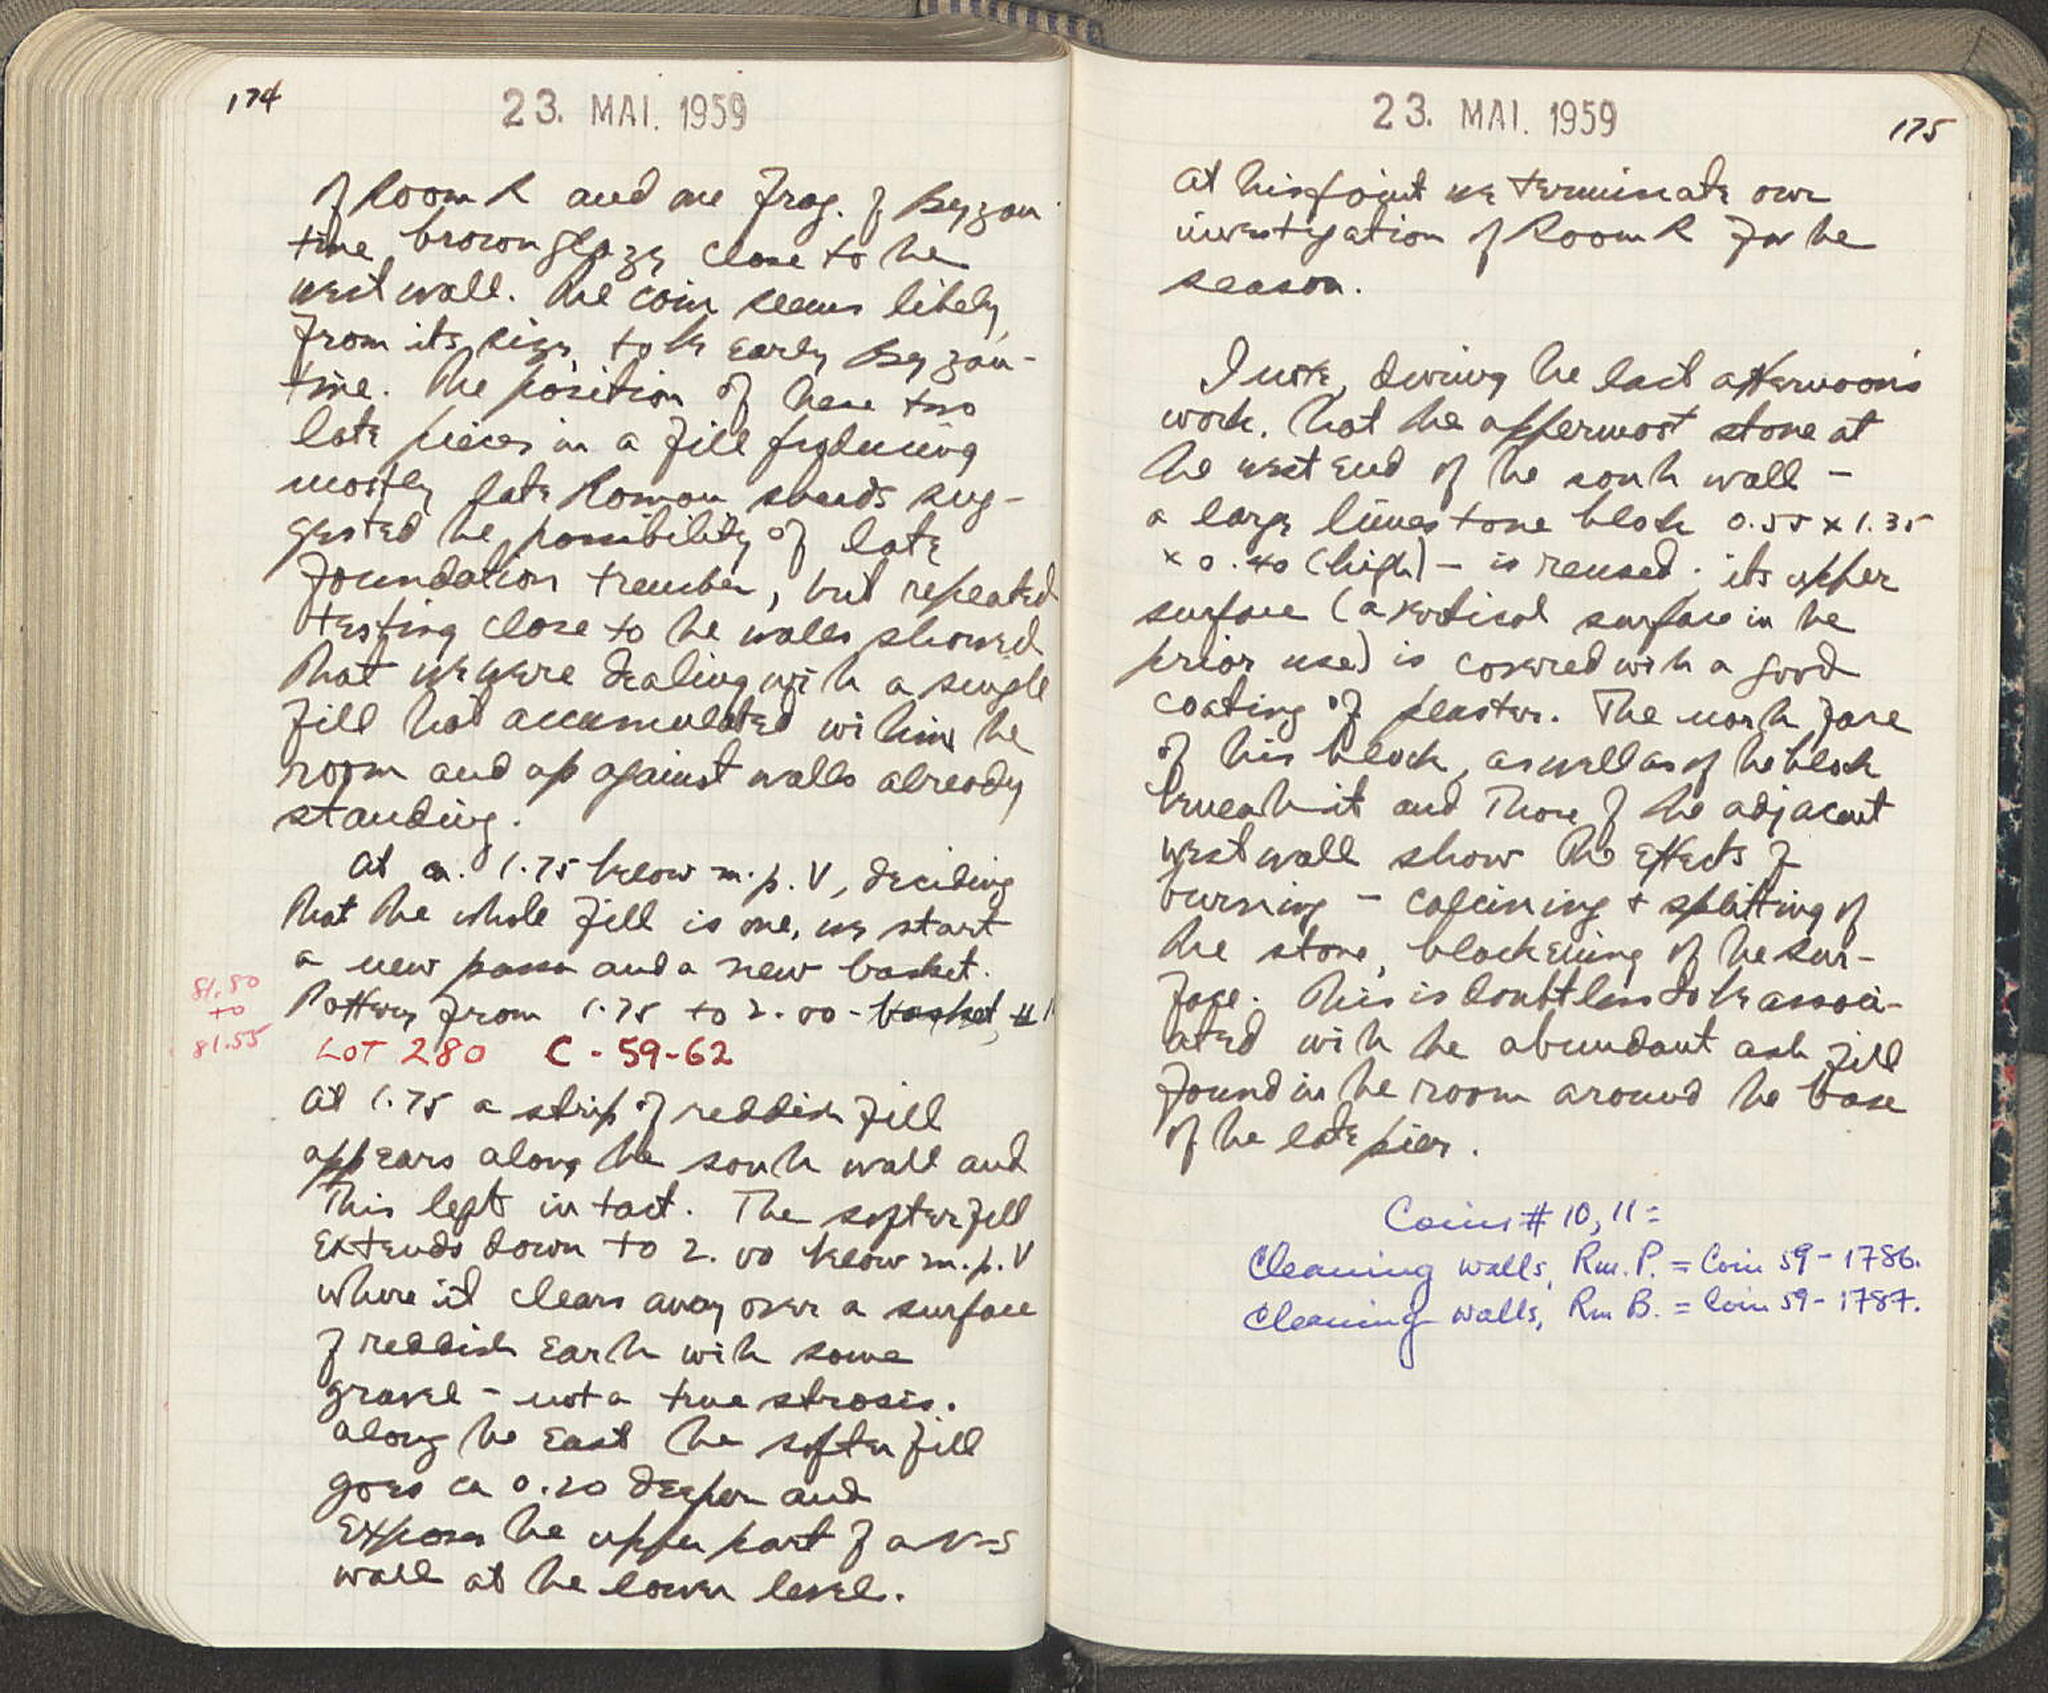 174
23. MAI. 1959
of Room R and one frag. of Byzan-
tine brown glaze close to the
west wall. The coin seems likely,
from its size, to be early Byzan-
tine. The position of these two
late pieces in a fill producing
mostly late Roman sherds sug-
gested the possibility of late
foundation trenches, but repeated
testing close to the walls showed
that we were dealing with a single
fill that accumulated within the
room and up against walls already
standing.
At ca. 1.75 below m.p. V, deciding
that the whole fill is one, we start
a new pass and a new basket.
81.80
to
81.55
Pottery from 1.75 to 2.00 - basket #11
LOT 280 C-59-62
At 1.75 a strip of reddish fill
appears along the south wall and
this left intact. The softer fill
extends down to 2.00 below m.p. V
where it clears away over a surface
of reddish earth with some
gravel - not a true strosis.
Along the east the softer fill
goes ca 0.20 deeper and
exposes the upper part of a N-S
wall at the lower level.
175
23. MAI. 1959
At this point we terminate our
investigation of Room R for the
season.
I note, during the last afternoon's
work, that the uppermost stone at
the west end of the south wall -
a large limestone block 0.55 x 1.35
x 0.40 (high) - is reused; its upper
surface (a vertical surface in the
prior use) is covered with a good
coating of plaster. The north face
of this block, as well as of the block
beneath it and those of the adjacent
west wall show the effects of
burning - calcining + splitting of
the stone, blackening of the sur-
face. This is doubtless to be associ-
ated with the abundant ash fill
found in the room around the base
of the late pier.
Coins # 10, 11 =
Cleaning walls, Rm. P. = Coin 59-1786.
Cleaning walls, Rm B. = Coin 59-1787.